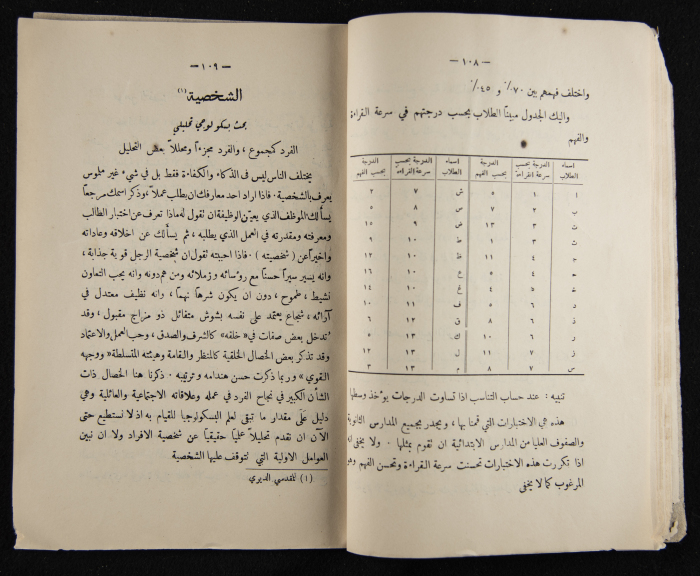 — ١٠٨ —
واختلف فهمهم بين ٧٠٪ و ٤٥٪
واليك الجدول مبيناً الطلاب بحسب درجتهم في سرعة القراءة
والفهم
اسماء الطلاب الدرجة بحسب سرعة القراءة الدرجة بحسب الفهم اسماء الطلاب الدرجة بحسب سرعة القراءة الدرجة بحسب الفهم
ا ١ ٥ ش ٧ ٢
ب ٢ ٧ س ٨ ٥
ت ٣ ١٣ ض ٩ ١٥
ث ٣ ١ ط ١٠ ٩
ج ٤ ١١ ظ ١٠ ١٢
ح ٤ ٥ ع ١٠ ١٦
خ ٥ ٤ غ ١٠ ١٤
د ٦ ٥ ف ١١ ١٠
ذ ٦ ٨ ق ١٢ ٦
ر ٦ ١٠ ك ١٣ ٥
ز ٧ ١١ ل ١٣ ١٢
س ٧ ٨ م ١٣ ١٣
تنبيه : عند حساب التناسب اذا تساوت الدرجات يؤخذ وسطها
هذه هي الاختبارات التي قمنا بها ، ويجدر بجميع المدارس الثانوية
والصفوف العليا من المدارس الابتدائية ان تقوم بمثلها . ولا يخفى انه
اذا تكررت هذه الاختبارات تحسنت سرعة القراءة وتحسن الفهم وهو
المرغوب كما لا يخفى
— ١٠٩ —
الشخصية (١)
بحث بسكولوجي تحليلي
الفرد كمجموع ، والفرد مجزءاً ومحللاً بعض التحليل
يختلف الناس ليس في الذكاء والكفاءة فقط بل في شيء غير ملموس
يعرف بالشخصية . فاذا اراد احد معارفك ان يطلب عملاً ، وذكر اسمك مرجعاً
يسألك الموظف الذي يعيّن الوظيفة ان تقول له ماذا تعرف عن اختبار الطالب
ومعرفته ومقدرته في العمل الذي يطلبه ، ثم يسألك عن اخلاقه وعاداته
واخيراً عن ( شخصيته ) . فاذا احببته تقول ان شخصية الرجل قوية جذابة ،
وانه يسير سيراً حسناً مع رؤسائه وزملائه ومن هم دونه وانه يحب التعاون
نشيط ، طموح ، دون ان يكون شرهاً نهماً ، وانه نظيف معتدل في
آرائه ، شجاع يعتمد على نفسه بشوش متفائل ذو مزاج مقبول ، وقد
تدخل بعض صفات في « خلقه » كالشرف والصدق ، وحب العمل والاعتماد
وقد تذكر بعض الخصال الخلقية كالمنظر والقامة وهيئته المتسلطة « ووجهه
القوي » وربما ذكرت حسن هندامه وترتيبه . ذكرنا هنا الخصال ذات
الشأن الكبير في نجاح الفرد في عمله وعلاقاته الاجتماعية والعائلية وهي
دليل على مقدار ما تبقى لعلم البسكولوجيا للقيام به اذ لا نستطيع حتى
الآن ان نقدم تحليلاً علمياً حقيقياً عن شخصية الافراد ولا ان نبين
العوامل الاولية التي تتوقف عليها الشخصية
(١) للمقدسي الديري